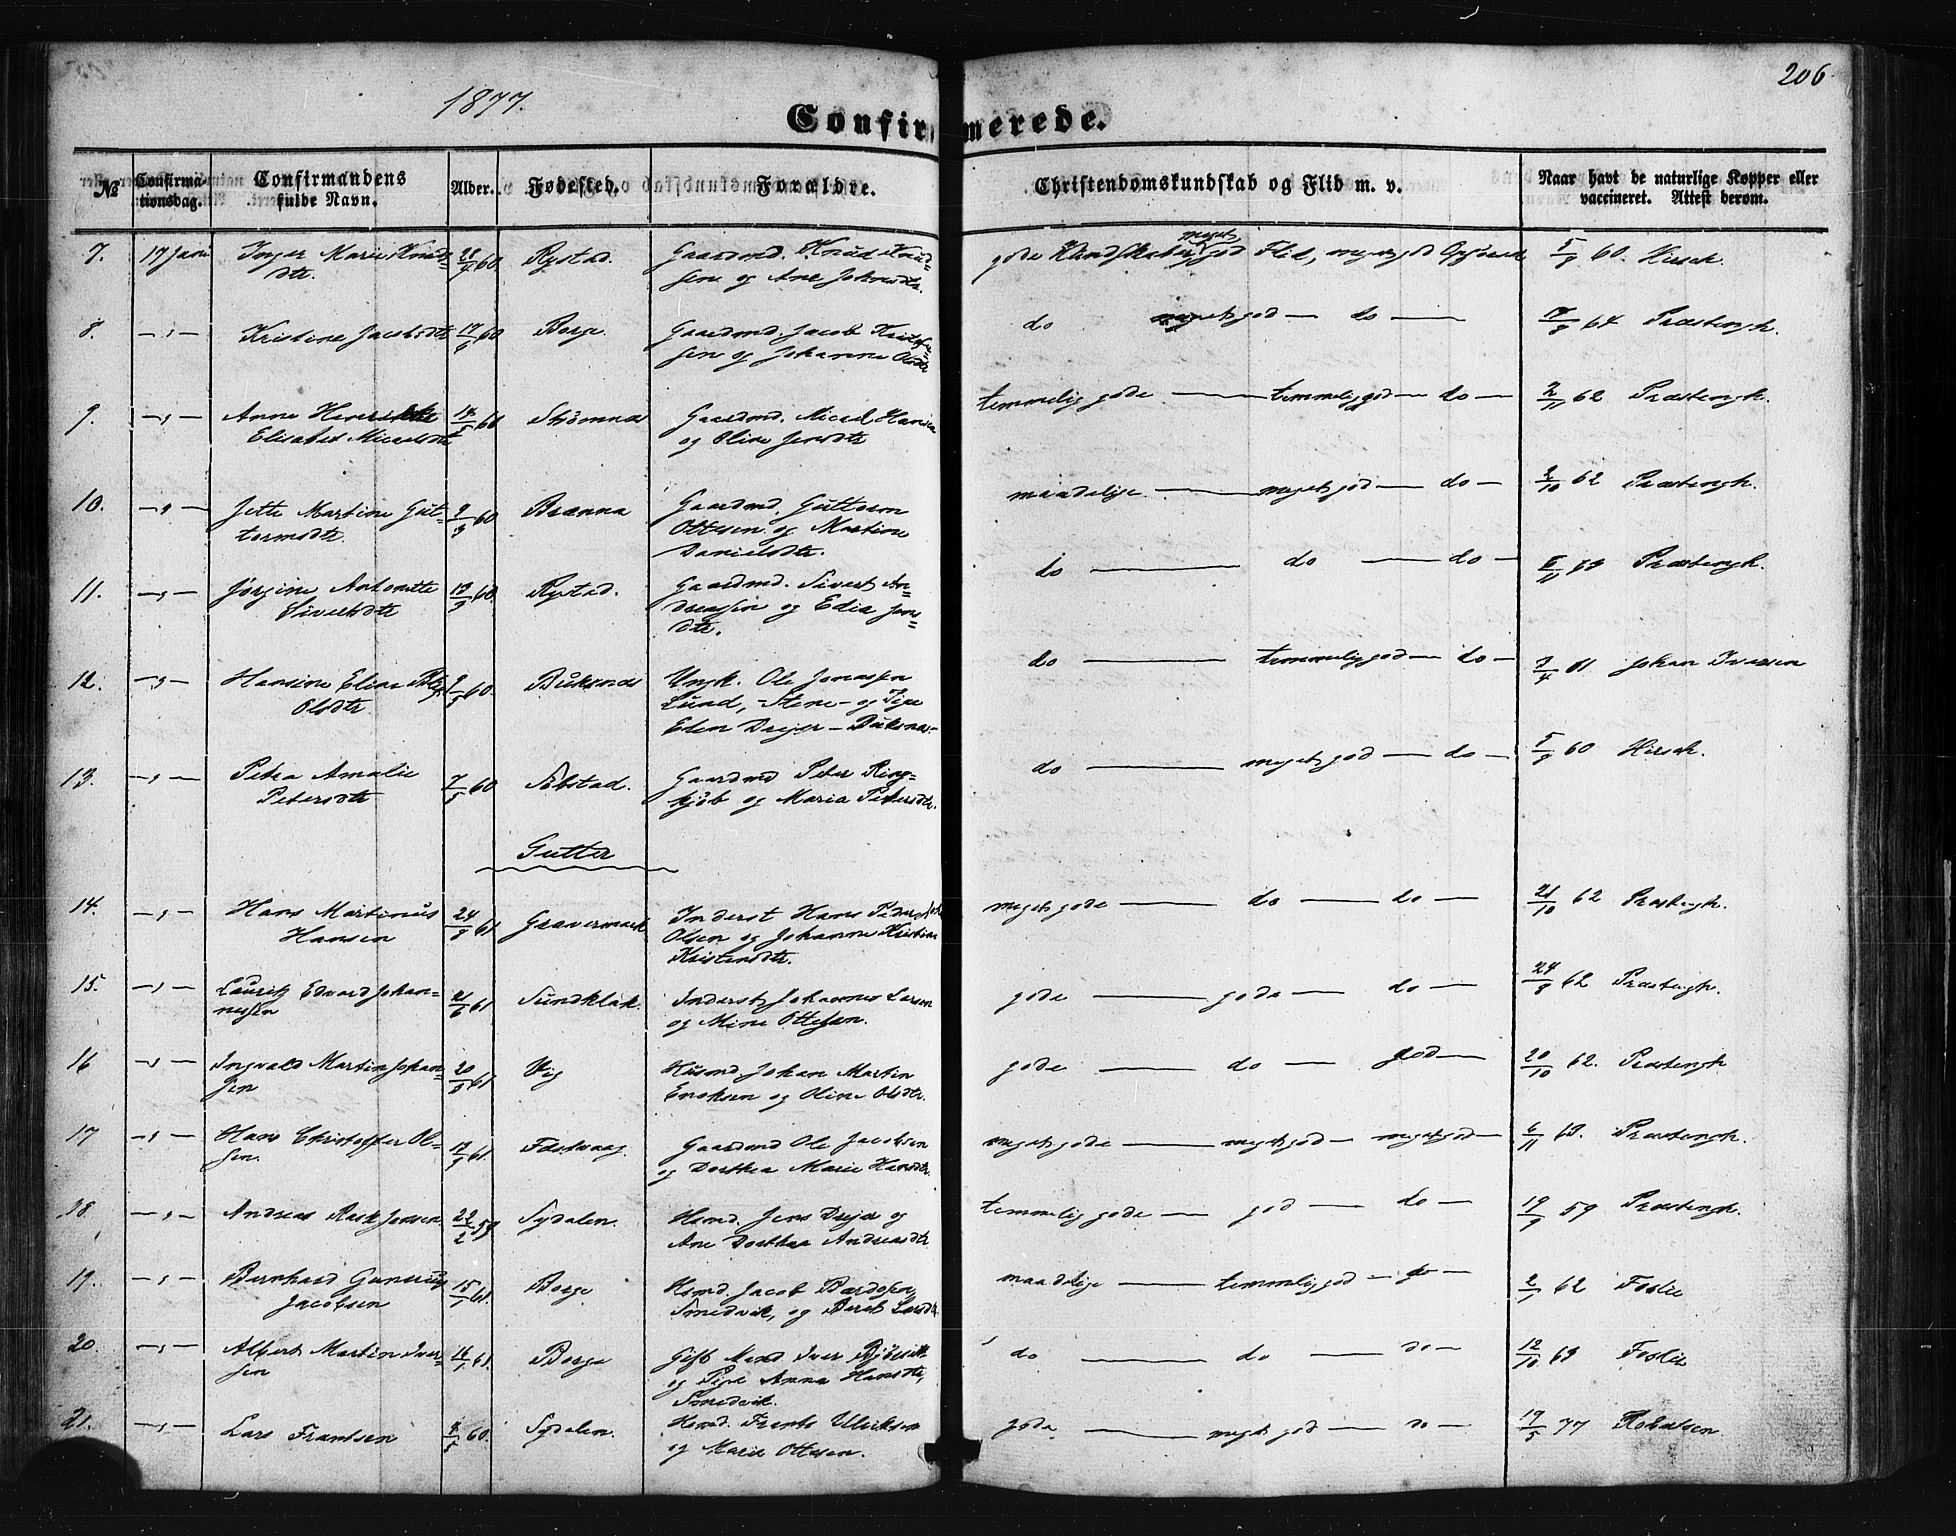 206
1877.
Confirmerede.
№
Confirma-
tionsdag.
Confirmandens
fulde Navn.
Alder.
Fødested.
Forældre.
Christendomskundskab og Flid m. v.
Naar havt de naturlige Kopper eller
vaccineret. Attest derom.
7. 17 Juni Inger Marie Knuds- 60 Rystad. Gaardmd. Knud Knud-
dtr. sen og Ane Johnsdtr.
gode Kundskaber meget god Flid, meget god Opførsel 5/9 60. Hirsch.
8. —„— Kristine Jacobsdtr 60 Borge. Gaardmd. Jacob
sen og Johanna Olsdtr
do meget god — do — 64 Præstengh.
9. —„— Anne Henrikke 60 Strømnæs Gaardmd. Micael Hansen
Elisabet Micaelsdtr og Oline Jensdtr
temmelig gode — temmelig god — do — 2/11 62 Præstengh.
10. —„— Jette Martine Gut- 60 Brænna Gaardmd. Guttorm
tormsdtr. Ottesen og Martine
Danielsdtr.
maadelige — meget god — do — 2/10 62 Præstengh.
11. —„— Jørgine Antonette 60. Rystad. Gaardmd. Sivert An-
Sivertsdtr dreassen og Edia Jens-
dtr.
do — do — do — Præstengh.
12. —„— Hansine Elene 60. Buksnæs Ungk. Ole Jonassen
Olsdtr Lund, Stene — og Pige
Elen Dreyer — Buksnæs —
do — temmelig god — do — 61. Johan Iversen
13. —„— Petra Amalie 7/5 60 Sobstad. Gaardmd Peter Ring-
Petersdtr kjøb og Maria Petersdtr.
do — meget god — do — 5/9 60 Hirsch.
Gutter
14. —„— Hans Martinus 24/8 61 Gravermark Inderst Hans Peder
Hansen Olsen og Johanne Kristine
Kristensdtr.
meget gode — do — do — 21/10 62 Præstengh.
15. —„— Lauritz Edvard Johan- 21/6 61 Sundklak. Inderst Johannes Larsen
nessen og Mine Ottesen.
gode — gode — do — 24/8 62 Præstengh.
16 —„— Ingvald Martin Johan- 20/8 61 Vig Husmd. Johan Martin
sen Enoksen og Oline Olsdtr.
gode — do — god — 20/10 62. Præstengh
17 —„— Hans Christoffer Ol- 61. Farstvaag Gaardmd Ole Jacobsen
sen. og Dorthea Marie Hansdtr.
meget gode — meget god — meget god — 6/11 63. Præstengh.
18 —„— Andreas Rask Jensen 59 Sydalen. Hsmd. Jens Dreyer og
Ane Dorthea Andreasdtr
temmelig gode — god — do — 19/9 59 Præstengh.
19. —„— Bernhard Gunerius 15/1 61. Borge Hsmd. Jacob Bardosen
Jacobsen Smedvik, og Beret Larsdtr.
maadelige — temmelig god — do — 62 Foslie
20. —„— Albert Martin Iver- 16/1 61. Borge Gift Mand Iver
sen og Pige Anna Hansdtr,
Smedvik.
do — do — do — 12/10 63 Foslie
21. —„— Lars Frantsen 60. Sydalen. Hsmd. Frants Ulriksen
og Marie Ottesen.
gode — meget god — do — 19/5 77 Robertsen